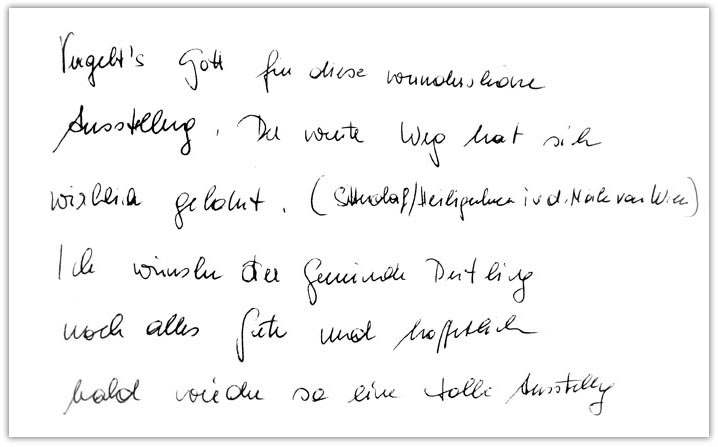 Vergelt's Gott für diese wunderschöne
Ausstellung. Der weite Weg hat sich
wirklich gelohnt. (Sittendorf/Heiligenkreuz i. d. Nähe von Wien)
Ich wünsche der Gemeinde
noch alles Gute und hoffentlich
bald wieder so eine tolle Ausstellung